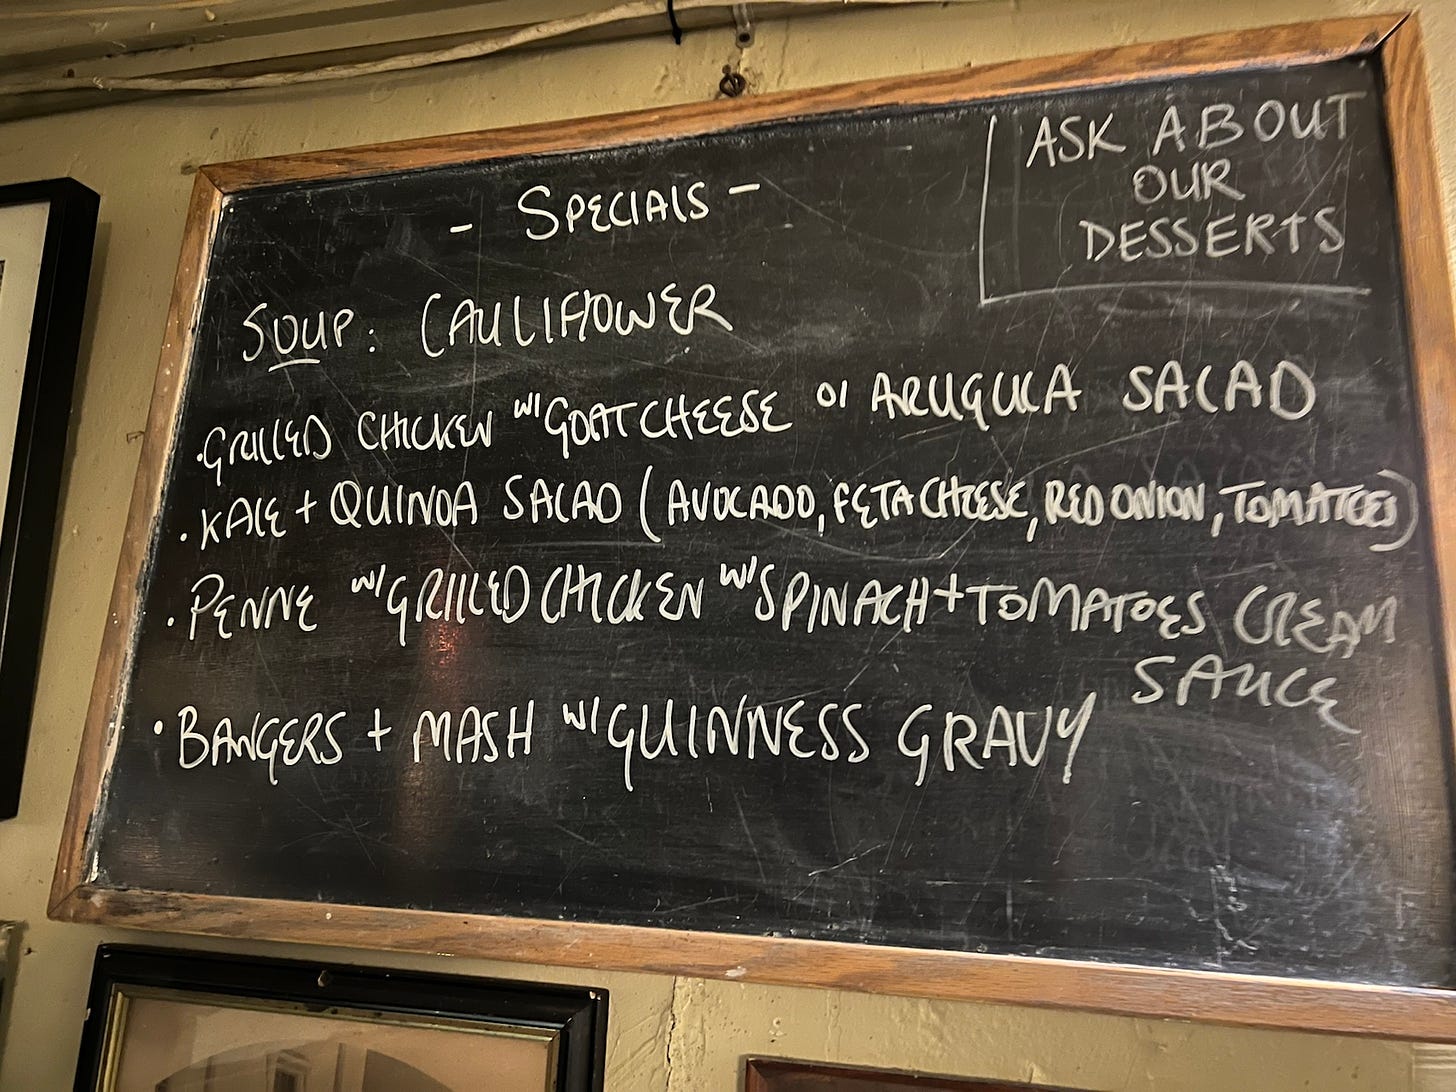 - SPECIALS -
ASK ABOUT
OUR
DESSERTS
SOUP: CAULIFLOWER
·GRILLED CHICKEN w/ GOAT CHEESE o/ ARUGULA SALAD
·KALE + QUINOA SALAD (AVOCADO, FETA CHEESE, RED ONION, TOMATOES)
·PENNE w/ GRILLED CHICKEN w/ SPINACH + TOMATOES CREAM
SAUCE
·BANGERS + MASH w/ GUINNESS GRAVY